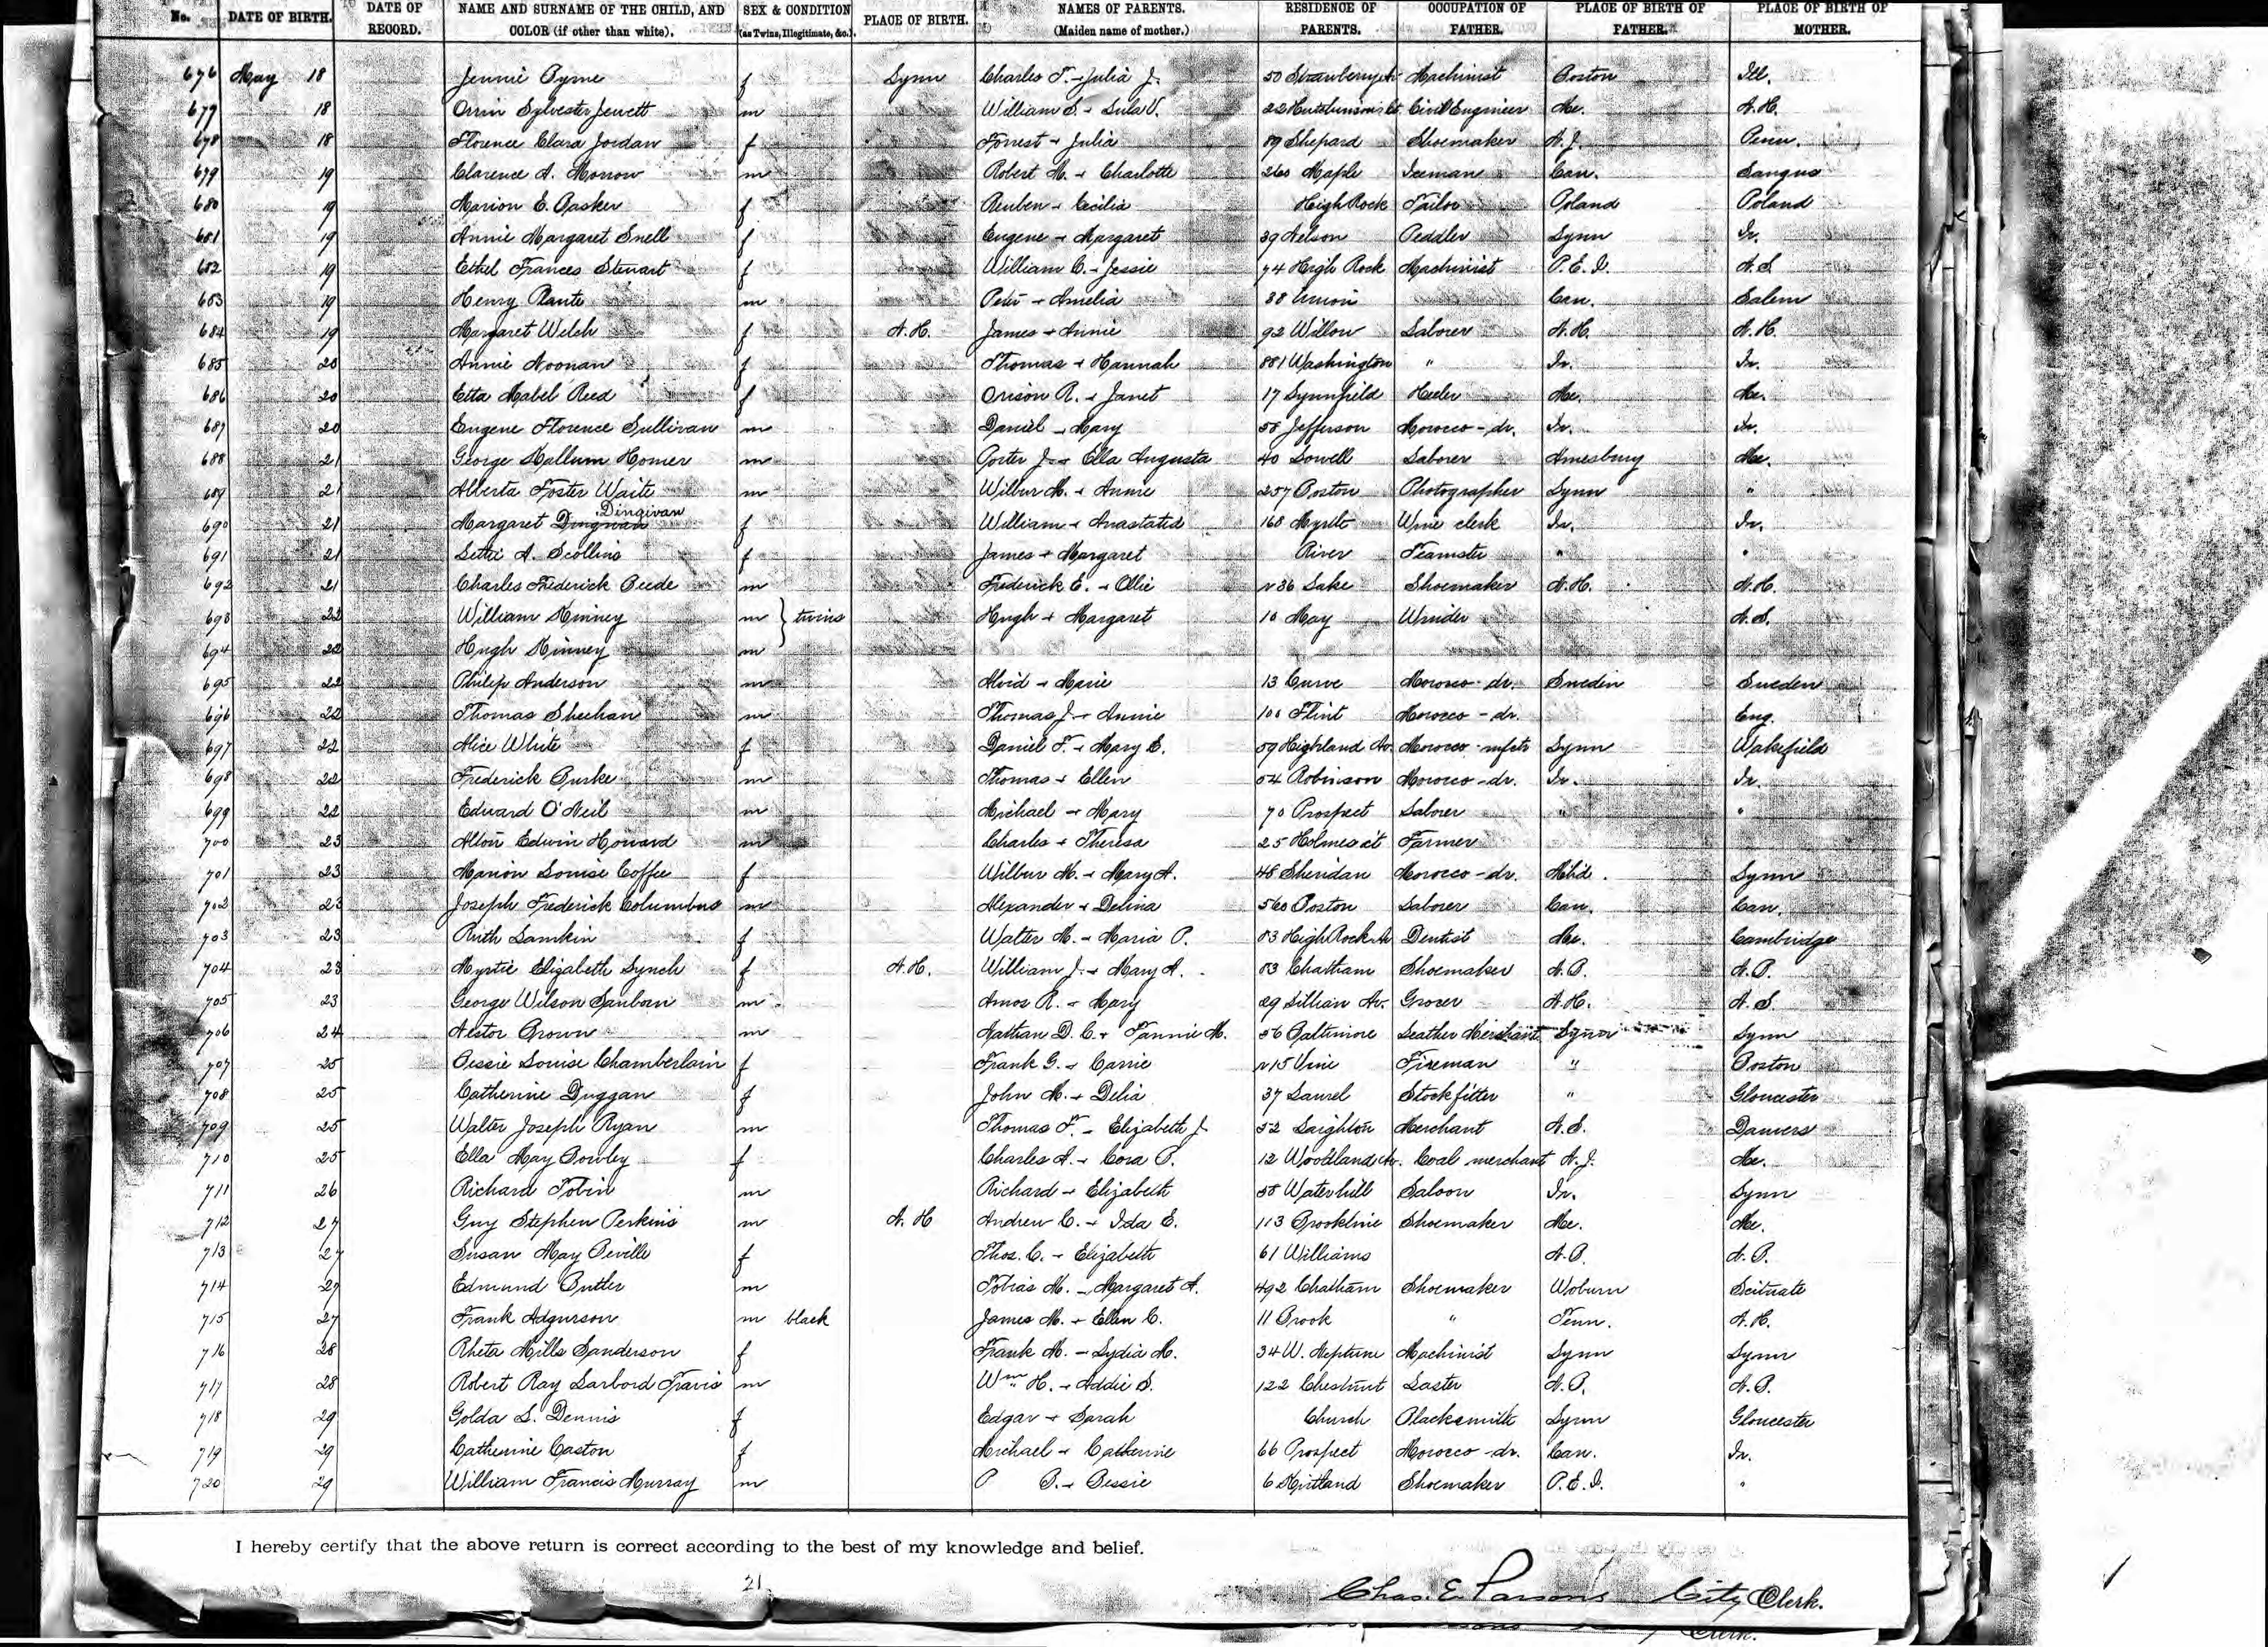 No. DATE OF BIRTH. DATE OF RECORD. NAME AND SURNAME OF THE CHILD, AND COLOR (if other than white). SEX & CONDITION (as Twins, Illegitimate, &c.). PLACE OF BIRTH. NAMES OF PARENTS. (Maiden name of mother.) RESIDENCE OF PARENTS. OCCUPATION OF FATHER. PLACE OF BIRTH OF FATHER. PLACE OF BIRTH OF MOTHER.
676 May 18 Jennie Pyne f Lynn Charles T. + Julia J. 50 Strawberry Av Machinist Boston Ill.
677 18 Orrin Sylvester Jewett m William S. + Lula V. 22 Hutchinson's Ct Civil Engineer Me. N.H.
678 18 Florence Clara Jordan f Forrest + Julia 89 Shepard Shoemaker N.J. Penn.
679 19 Clarence A. Morrow m Robert M. + Charlotte 260 Maple Iceman Can. Saugus
680 19 Marion E. Basker f Reuben + Cecilia High Rock Tailor Poland Poland
681 19 Annie Margaret Snell f Eugene + Margaret 39 Nelson Peddler Lynn Ir.
682 19 Ethel Frances Stewart f William C. + Jessie 74 High Rock Machinist P.E.I. N.S.
683 19 Henry Plante m Peter + Amelia 38 Union Can. Salem
684 19 Margaret Welsh f N.H. James + Annie 92 Willow Laborer N.H. N.H.
685 20 Annie Noonan f Thomas + Hannah 881 Washington " Ir. Ir.
686 20 Etta Mabel Reed f Orison R. + Janet 17 Lynnfield Heeler Me. Me.
687 20 Eugene Florence Sullivan m Daniel + Mary 58 Jefferson Morocco-dr. Ir. Ir.
688 21 George Mallum Homer m Porter J. + Ella Augusta 40 Lowell Laborer Amesbury Me.
689 21 Alberta Foster Waite m Wilbur M. + Annie 257 Boston Photographer Lynn "
690 21 Margaret Dingivan f William + Anastatia 168 Myrtle Wine clerk Ir. Ir.
691 21 Lettie A. Scollins f James + Margaret River Teamster " "
692 21 Charles Frederick Beede m Frederick E. + Ollie r 36 Lake Shoemaker N.H. N.H.
693 22 William Kinney m } twins Hugh + Margaret 10 May Winder N.S.
694 22 Hugh Kinney m
695 22 Philip Anderson m Alvid + Marie 13 Curve Morocco-dr. Sweden Sweden
696 22 Thomas Sheehan m Thomas J. + Annie 100 Flint Morocco-dr. Eng.
697 22 Alice White f Daniel F. + Mary E. 59 Highland Av. Morocco-mfctr Lynn Wakefield
698 22 Frederick Burke m Thomas + Ellen 54 Robinson Morocco-dr. Ir. Ir.
699 22 Edward O'Neil m Michael + Mary 70 Prospect Laborer " "
700 23 Alton Edwin Howard m Charles + Theresa 25 Holmes st Farmer
701 23 Marion Louise Coffee f Wilbur M. + Mary A. 48 Sheridan Morocco-dr. Lynn
702 23 Joseph Frederick Columbus m Alexander + Delina 560 Boston Laborer Can. Can.
703 23 Ruth Lamkin f Walter M. + Maria P. 83 High Rock Av Dentist Me. Cambridge
704 23 Myrtie Elizabeth Lynch f N.H. William J. + Mary A. 83 Chatham Shoemaker N.B. N.B.
705 23 George Wilson Sanborn m Amos R. + Mary 29 Lillian Av. Grocer N.H. N.S.
706 24 Nestor Brown m Nathan D. C. + Fannie M. 56 Baltimore Leather Merchant Lynn Lynn
707 25 Bessie Louise Chamberlain f Frank G. + Carrie r 15 Vine Fireman " Boston
708 25 Catherine Duggan f John M. + Delia 37 Laurel Stock fitter " Gloucester
709 25 Walter Joseph Ryan m Thomas F. + Elizabeth J. 52 Leighton Merchant N.S. Danvers
710 25 Ella May Bowley f Charles A. + Cora P. 12 Woodland Av. Coal merchant N.J. Me.
711 26 Richard Tobin m Richard + Elizabeth 58 Waterhill Saloon Ir. Lynn
712 27 Guy Stephen Perkins m N.H Andrew C. + Ida E. 113 Brookline Shoemaker Me. Me.
713 27 Susan May Beville f Thos. C. + Elizabeth 61 Williams N.B. N.B.
714 27 Edmund Butler m Tobias M. + Margaret A. 492 Chatham Shoemaker Woburn Scituate
715 27 Frank Adgurson m black James M. + Ellen C. 11 Brook " Tenn. N.H.
716 28 Rheta Mills Sanderson f Frank M. + Lydia M. 34 W. Neptune Machinist Lynn Lynn
717 28 Robert Ray Larbord Travis m Wm H. + Addie S. 122 Chestnut Laster N.B. N.B.
718 29 Golda L. Dennis f Edgar + Sarah Church Blacksmith Lynn Gloucester
719 29 Catherine Caston f Michael + Catherine 66 Prospect Morocco-dr. Can. Ir.
720 29 William Francis Murray m P B. + Bessie 6 Kirtland Shoemaker P.E.I. "
I hereby certify that the above return is correct according to the best of my knowledge and belief.
21
Chas. E. Parsons City Clerk.
Clerk.